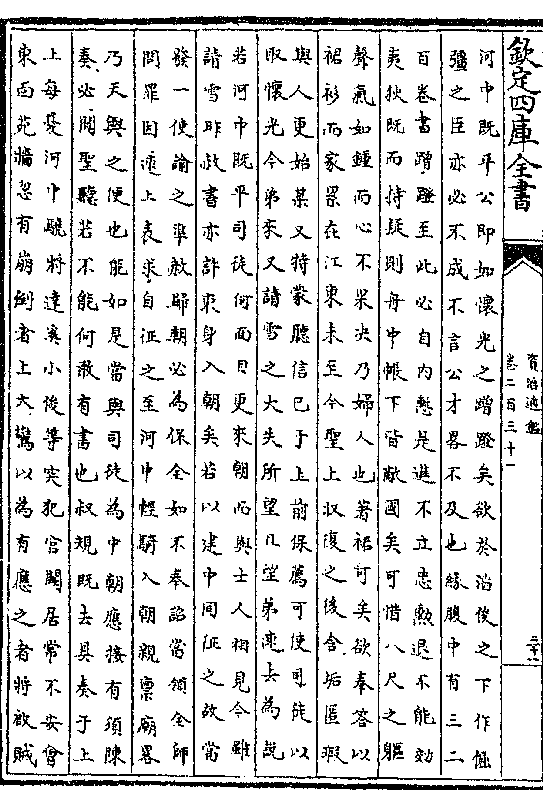 欽定四庫全書
資治通鑑
卷二百三十一
河中既平公即如懷光之蹭蹬矣欲於治俊之下作
彊之臣亦必不成不言公才畧不及也緣腹中有三二
百卷書蹭蹬至此必自內慙是進不立忠勲退不能効
夷狄既而持疑則舟中帳下皆敵國矣可惜八尺之軀
聲氣如鍾而心不果決乃婦人也著裙可矣欲奉答以
裙衫而家累在江東未至今聖上収復之後含垢匿瑕
與人更始某又特蒙聽信已于上前保薦可使司徒以
取懷光今弟來又請雪之大失所望凡望弟速去為說
若河中既平司徒何面目更來朝而與士人相見今雖
請雪昨赦書亦許束身入朝矣若以建中同征之故當
發一使諭之準赦歸朝必為保全如不奉詔當領全師
問罪因遂上表求自征之至河中輕騎入朝親禀廟畧
乃天與之便也能如是當與司徒為中朝應接有須陳
奏必聞聖聽若不能何敢有書也叔規既去具奏于上
上每憂河中驍將達奚小俊等突犯宮闕居常不安會
東面苑牆忽有崩倒者上大驚以為有應之者將啟賊